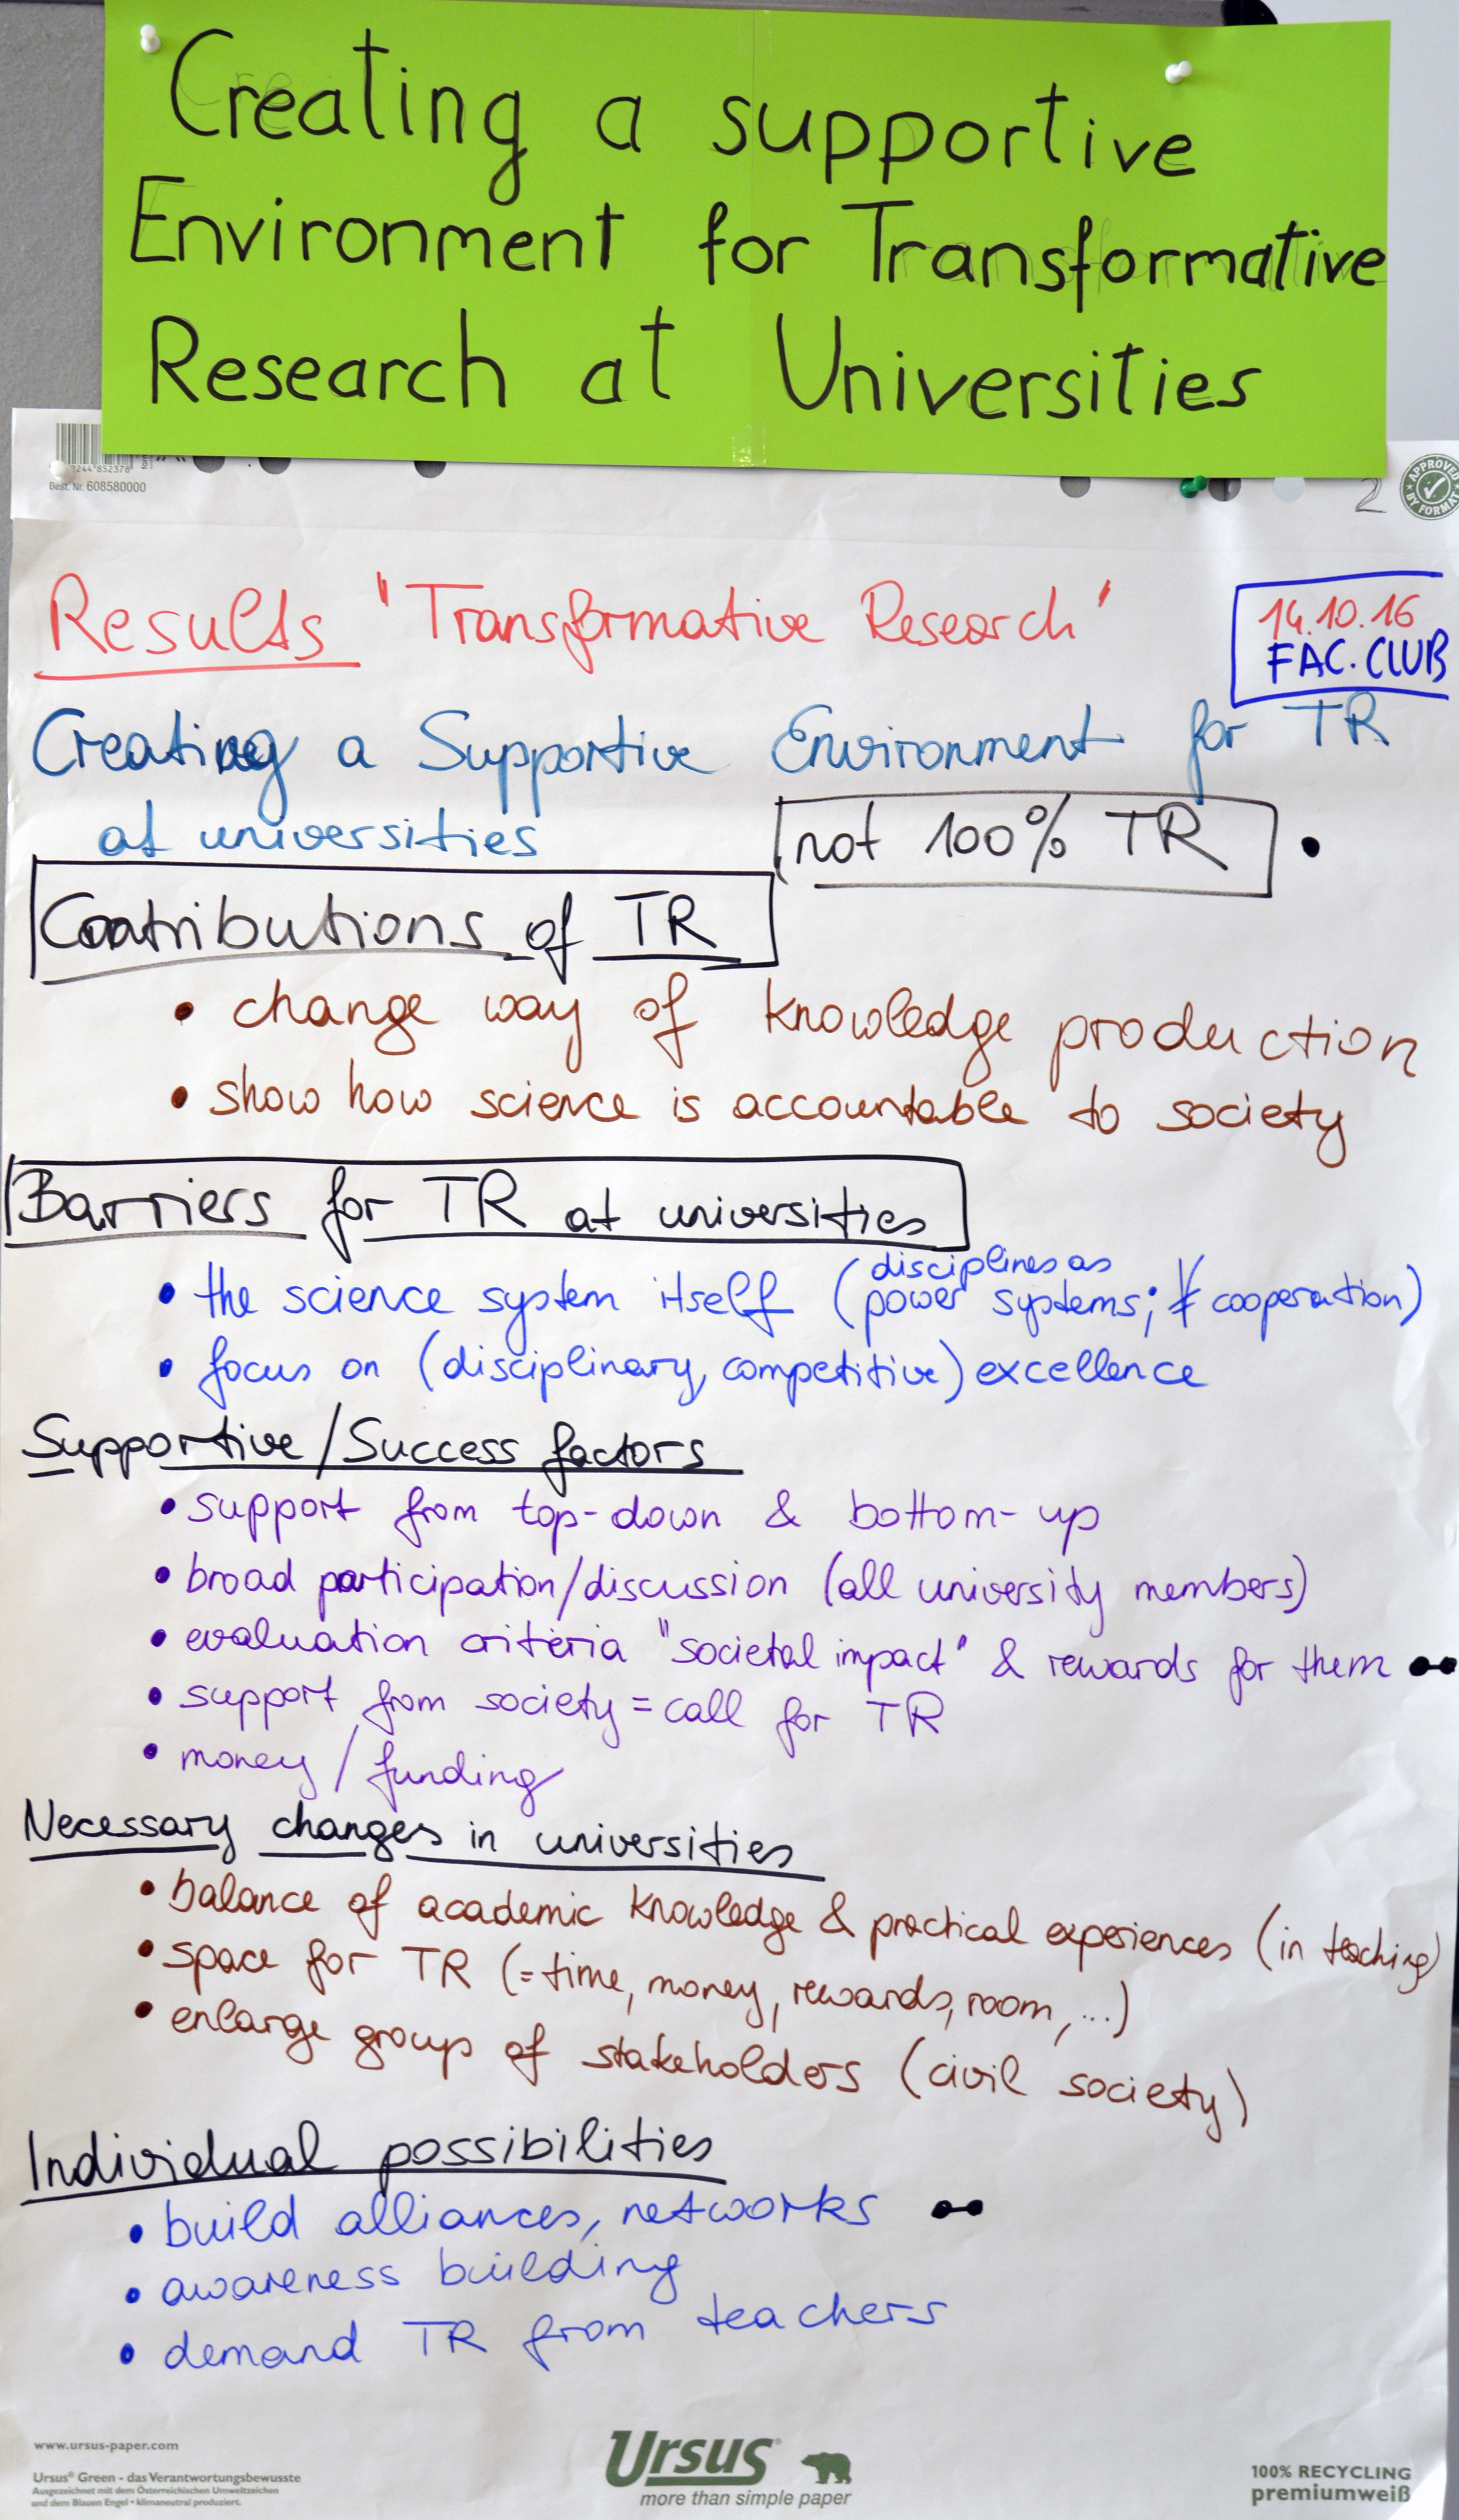 Creating a supportive
Environment for Transformative
Research at Universities
244 852378
Best. Nr. 608580000
2
APPROVED
BY FORMAT
Results "Transformative Research"
14.10.16
FAC. CLUB
Creating a Supportive Environment for TR
at universities
not 100% TR
Contributions of TR
• change way of knowledge production
• show how science is accountable to society
Barriers for TR at universities
• the science system itself (disciplines as
power systems; ≠ cooperation)
• focus on (disciplinary, competitive) excellence
Supportive/Success factors
• support from top-down & bottom-up
• broad participation/discussion (all university members)
• evaluation criteria "societal impact" & rewards for them
• support from society = call for TR
• money / funding
Necessary changes in universities
• balance of academic knowledge & practical experiences (in teaching)
• space for TR (= time, money, rewards, room, ...)
• enlarge group of stakeholders (civil society)
Individual possibilities
• build alliances, networks
• awareness building
• demand TR from teachers
www.ursus-paper.com
Ursus® Green - das Verantwortungsbewusste
Ausgezeichnet mit dem Österreichischen Umweltzeichen
und dem Blauen Engel • klimaneutral produziert.
Ursus
more than simple paper
100% RECYCLING
premiumweiß